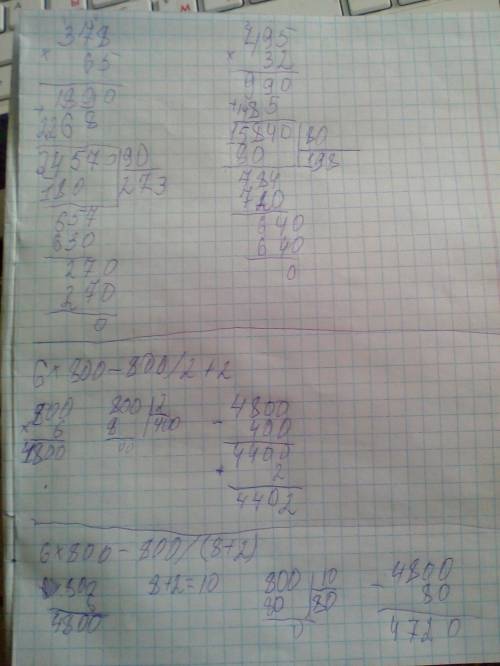 378
× 65
1890
+ 2268
24570 | 90
180 | 273
657
630
270
270
0
495
× 32
990
+ 1485
15840 | 80
80 | 198
784
720
640
640
0
6 × 800 - 800/2 + 2
800
× 6
4800
800 | 2
8 | 400
00
- 4800
400
4400
+ 2
4402
6 × 800 - 800/(8+2)
4800
8+2=10
800 | 10
80 | 80
0
- 4800
80
4720